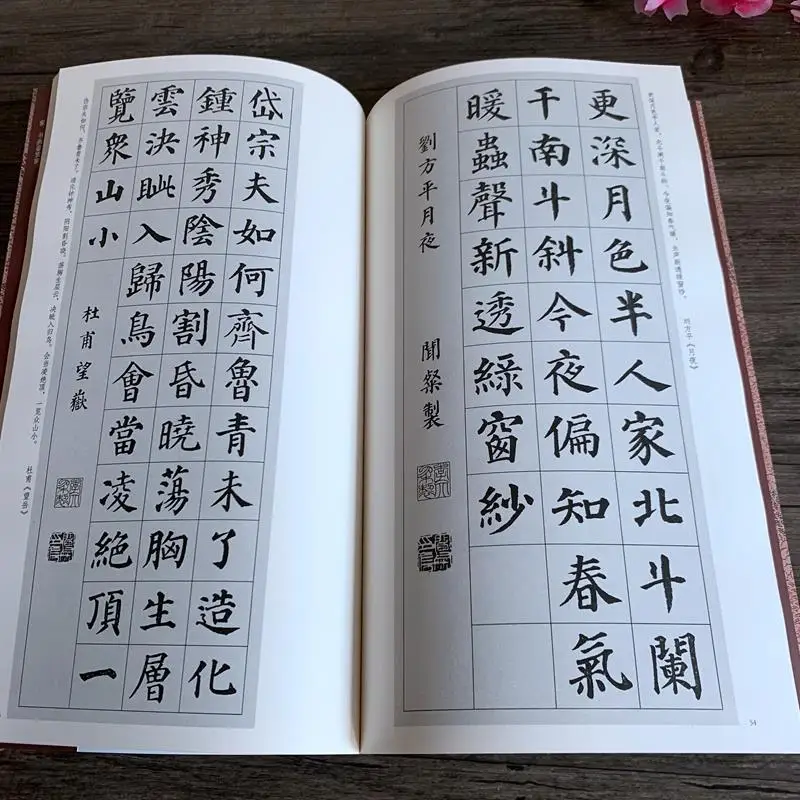 更深月色半人家北斗闌
千南斗斜今夜偏知春氣
暖蟲聲新透綠窗紗
劉方平月夜 聞粲製
更深月色半人家，北斗阑干南斗斜。今夜偏知春气暖，虫声新透绿窗纱。
刘方平《月夜》
54
岱宗夫如何齊魯青未了造化
鍾神秀陰陽割昏曉蕩胸生層
雲決眥入歸鳥會當凌絕頂一
覽衆山小
杜甫望嶽
岱宗夫如何，齐鲁青未了。造化钟神秀，阴阳割昏晓。荡胸生层云，决眦入归鸟。会当凌绝顶，一览众山小。
杜甫《望岳》